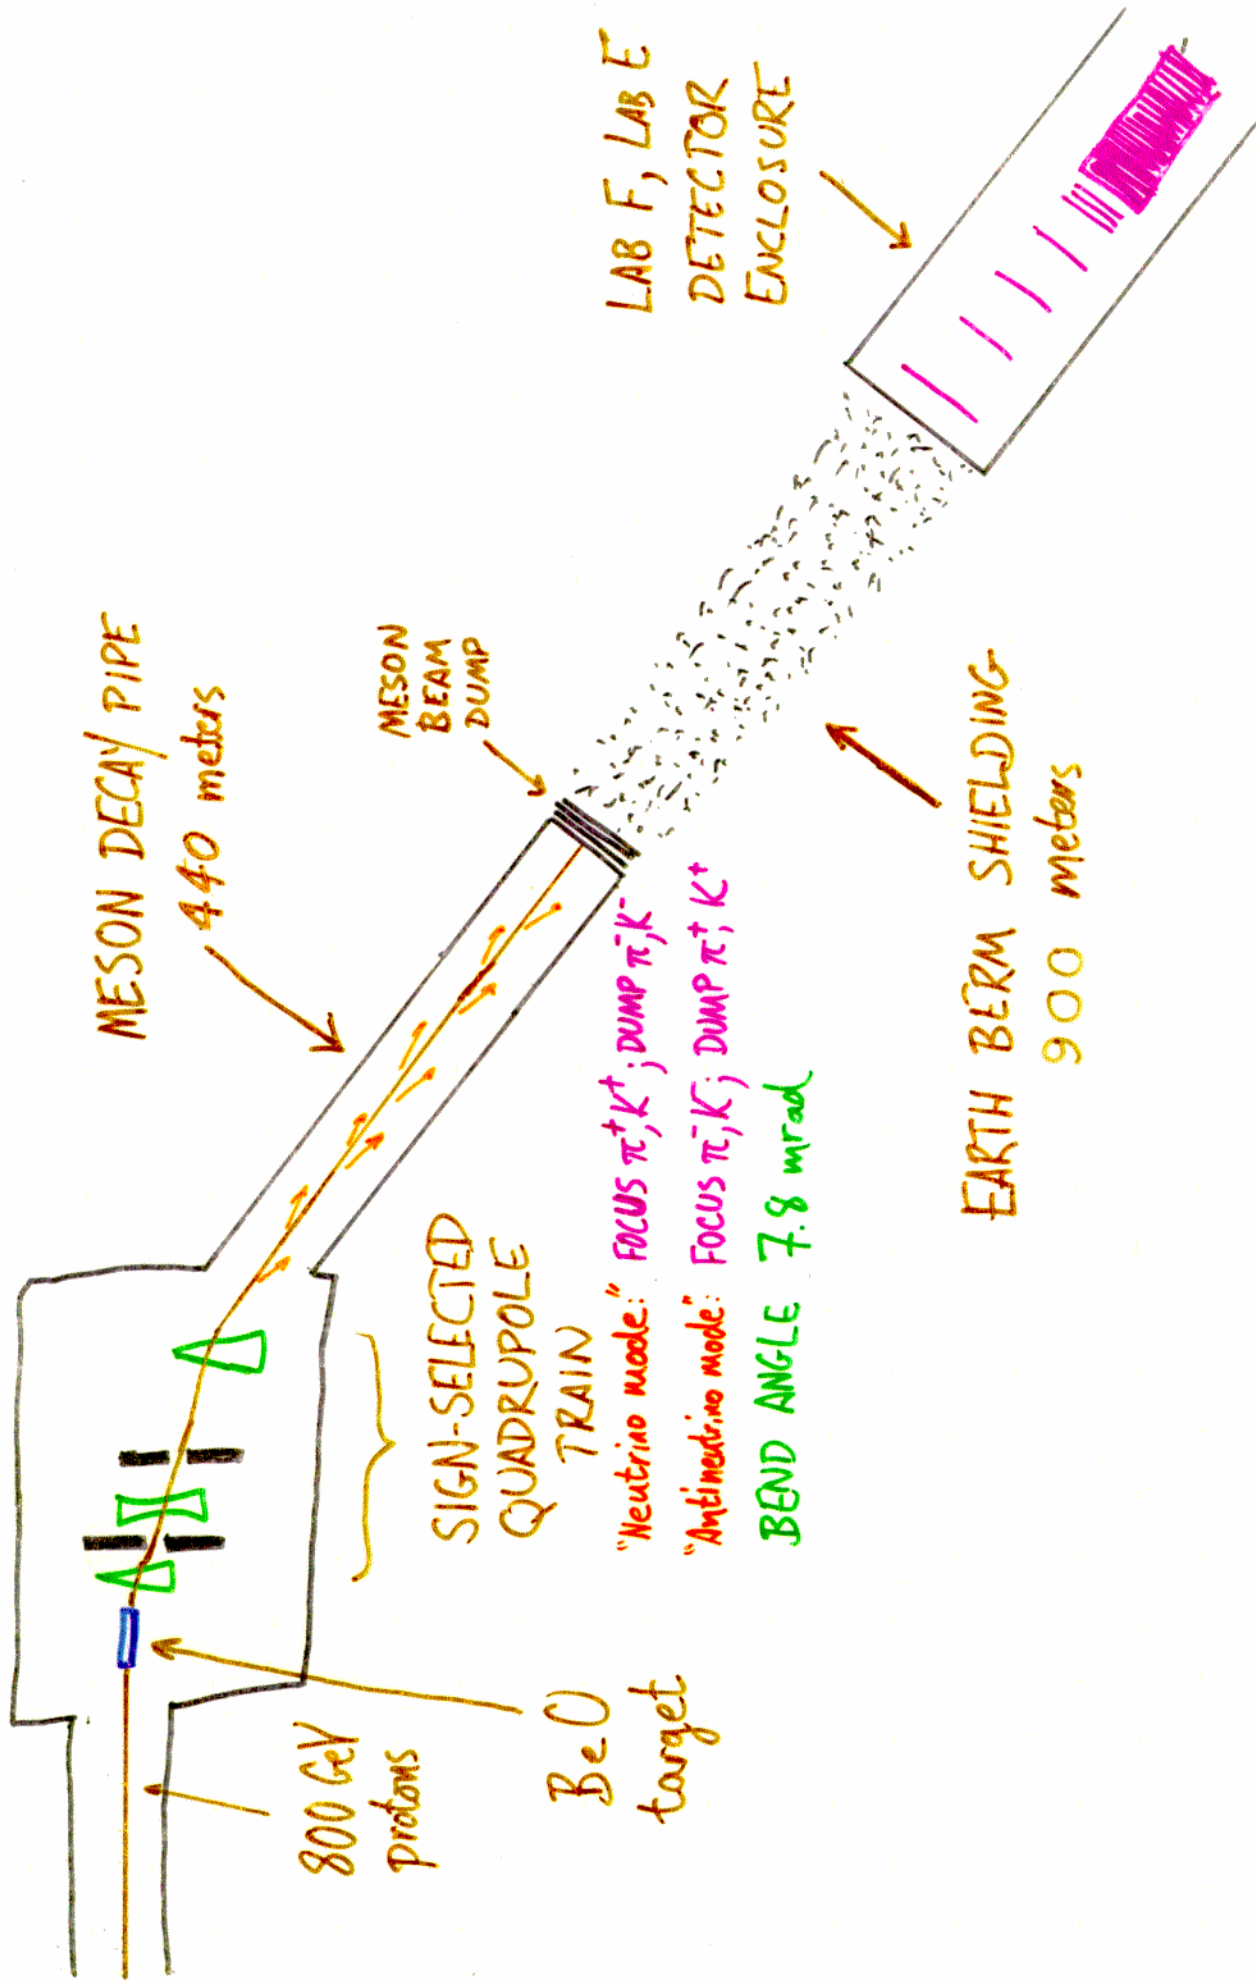 800 GeV
protons
BeO
target
SIGN-SELECTED
QUADRUPOLE
TRAIN
"Neutrino mode": FOCUS π⁺,K⁺; DUMP π⁻,K⁻
"Antineutrino mode": FOCUS π⁻,K⁻; DUMP π⁺, K⁺
BEND ANGLE 7.8 mrad
MESON DECAY PIPE
440 meters
MESON
BEAM
DUMP
EARTH BERM SHIELDING
900 meters
LAB F, LAB E
DETECTOR
ENCLOSURE